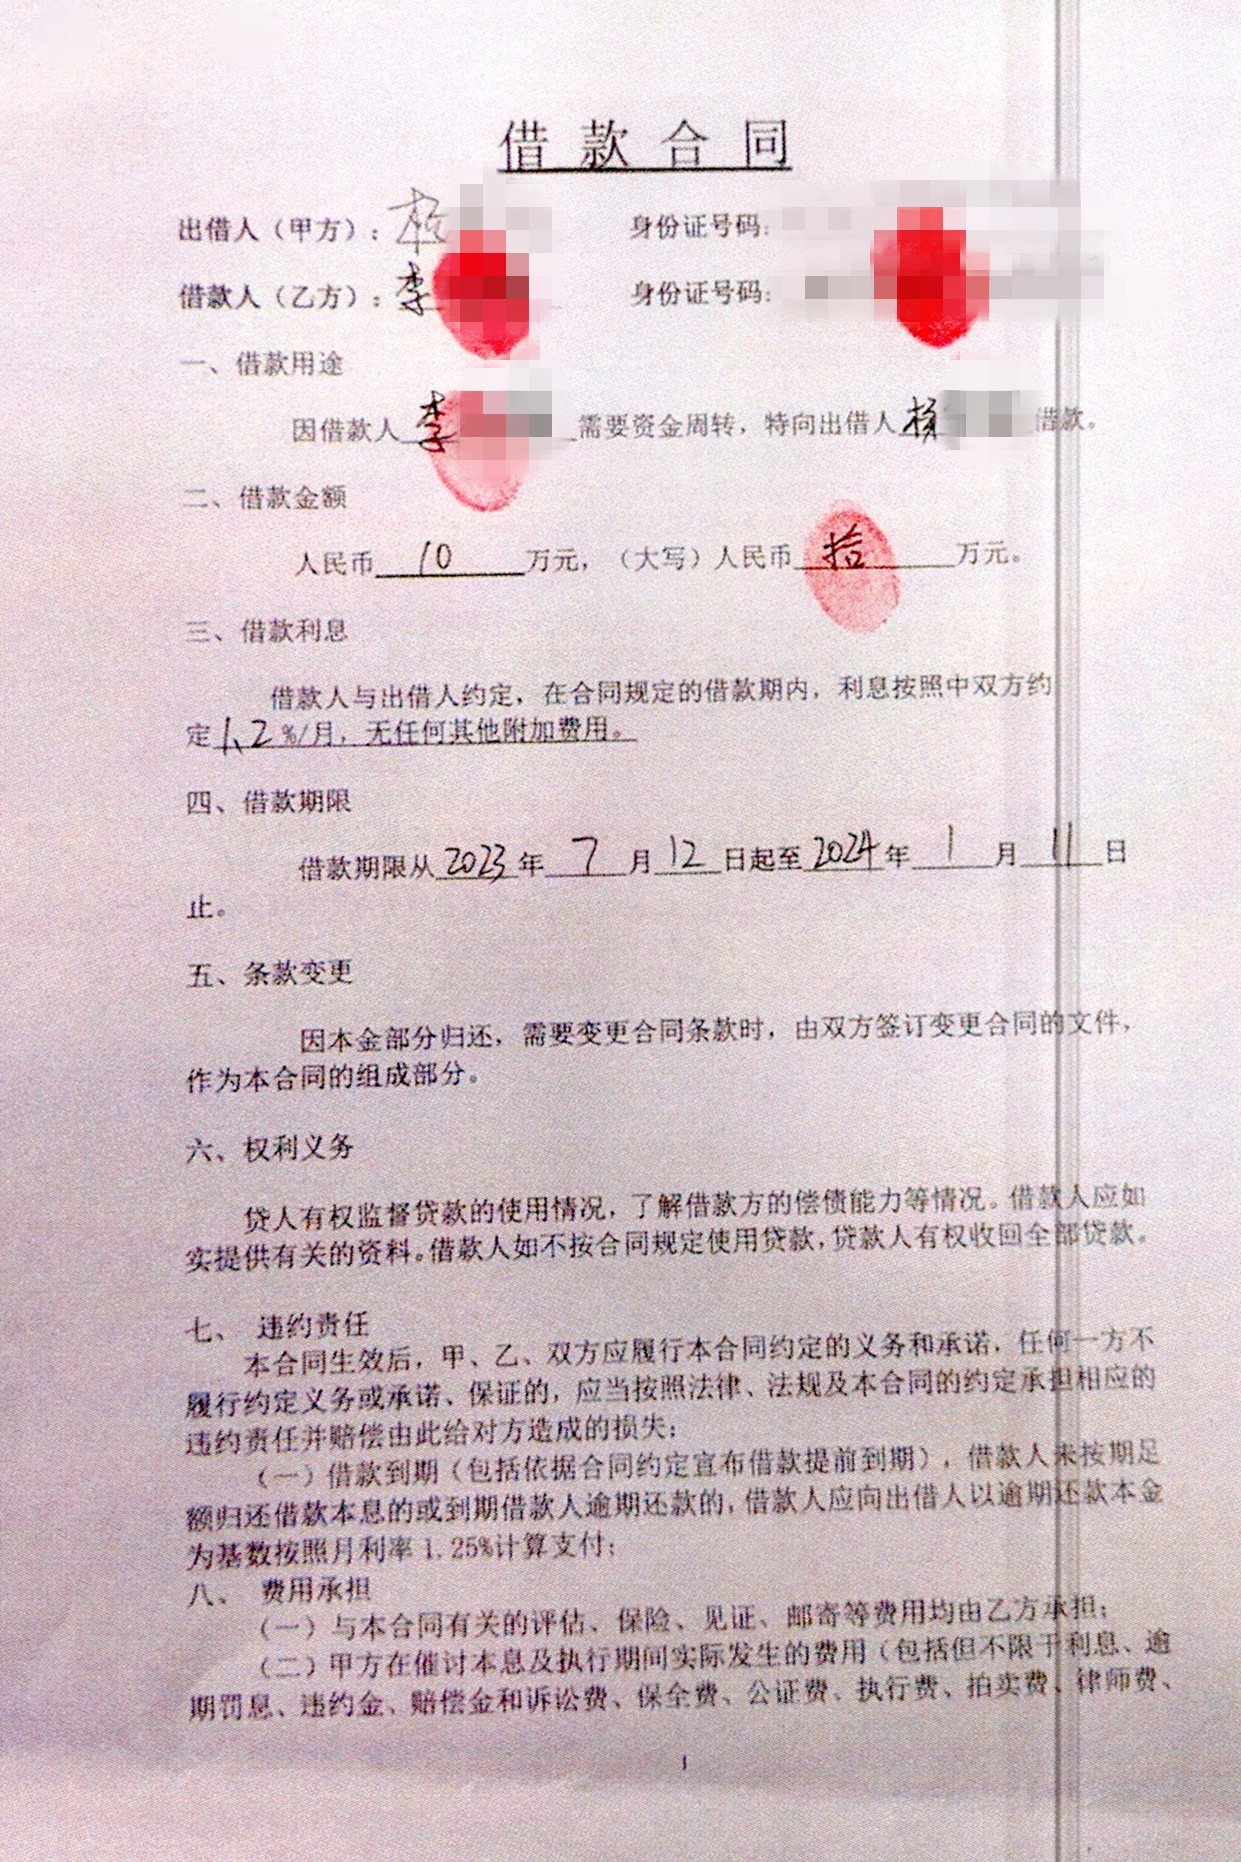 借款合同
出借人（甲方）： 身份证号码：
借款人（乙方）：李 身份证号码：
一、借款用途
因借款人李 需要资金周转，特向出借人杨 借款。
二、借款金额
人民币 10 万元，（大写）人民币 拾 万元。
三、借款利息
借款人与出借人约定，在合同规定的借款期内，利息按照中双方约
定1.2%/月，无任何其他附加费用。
四、借款期限
借款期限从2023年 7 月12日起至2024年 1 月 11 日
止。
五、条款变更
因本金部分归还，需要变更合同条款时，由双方签订变更合同的文件，
作为本合同的组成部分。
六、权利义务
贷人有权监督贷款的使用情况，了解借款方的偿债能力等情况。借款人应如
实提供有关的资料。借款人如不按合同规定使用贷款，贷款人有权收回全部贷款。
七、 违约责任
本合同生效后，甲、乙、双方应履行本合同约定的义务和承诺，任何一方不
履行约定义务或承诺、保证的，应当按照法律、法规及本合同的约定承担相应的
违约责任并赔偿由此给对方造成的损失；
（一）借款到期（包括依据合同约定宣布借款提前到期），借款人未按期足
额归还借款本息的或到期借款人逾期还款的，借款人应向出借人以逾期还款本金
为基数按照月利率1.25%计算支付；
八、 费用承担
（一）与本合同有关的评估、保险、见证、邮寄等费用均由乙方承担；
（二）甲方在催讨本息及执行期间实际发生的费用（包括但不限于利息、逾
期罚息、违约金、赔偿金和诉讼费、保全费、公证费、执行费、拍卖费、律师费、
1